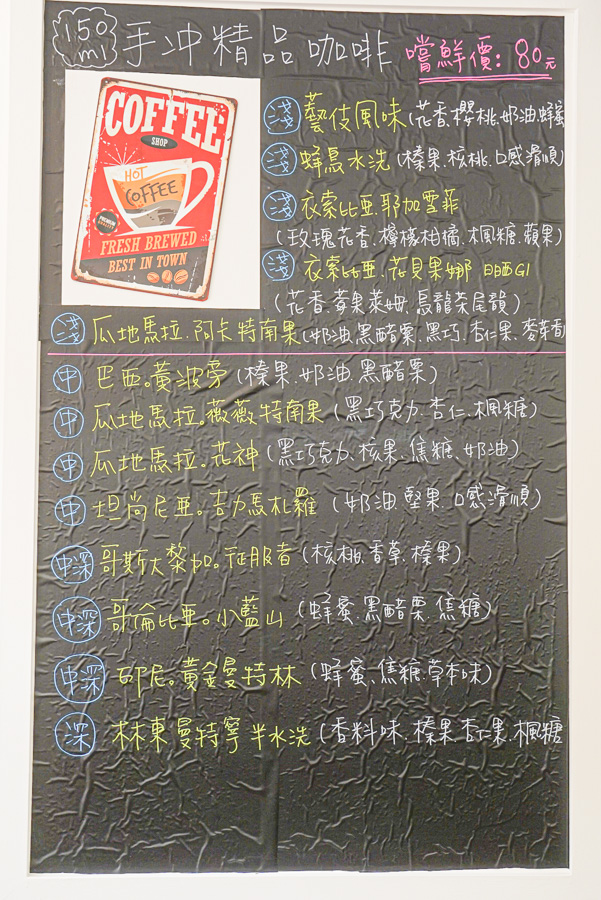 150 ml 手冲精品咖啡 嚐鮮價:80元
COFFEE
SHOP
HOT
COFFEE
PREMIUM
FRESH BREWED
BEST IN TOWN
淺 藝伎風味(花香.櫻桃.奶油.蜂蜜
淺 蜂鳥水洗(榛果.核桃.口感滑順)
淺 衣索比亞.耶加雪菲
(玫瑰花香.檸檬柑橘.楓糖.蘋果)
淺 衣索比亞.花貝果娜 日晒G1
(花香.莓果萊姆.烏龍茶尾韻)
淺 瓜地馬拉.阿卡特南果(奶油.黑醋栗.黑巧.杏仁果.麥芽香
中 巴西。黃波旁(榛果.奶油.黑醋栗)
中 瓜地馬拉。薇薇特南果(黑巧克力.杏仁.楓糖)
中 瓜地馬拉。花神(黑巧克力.核果.焦糖.奶油)
中 坦尚尼亞。吉力馬札羅(奶油.堅果.口感滑順)
中深 哥斯大黎加。征服者(核桃.香草.榛果)
中深 哥倫比亞。小藍山(蜂蜜.黑醋栗.焦糖)
中深 印尼。黃金曼特林(蜂蜜、焦糖.草本味)
深 林東曼特寧半水洗(香料味.榛果.杏仁果.楓糖